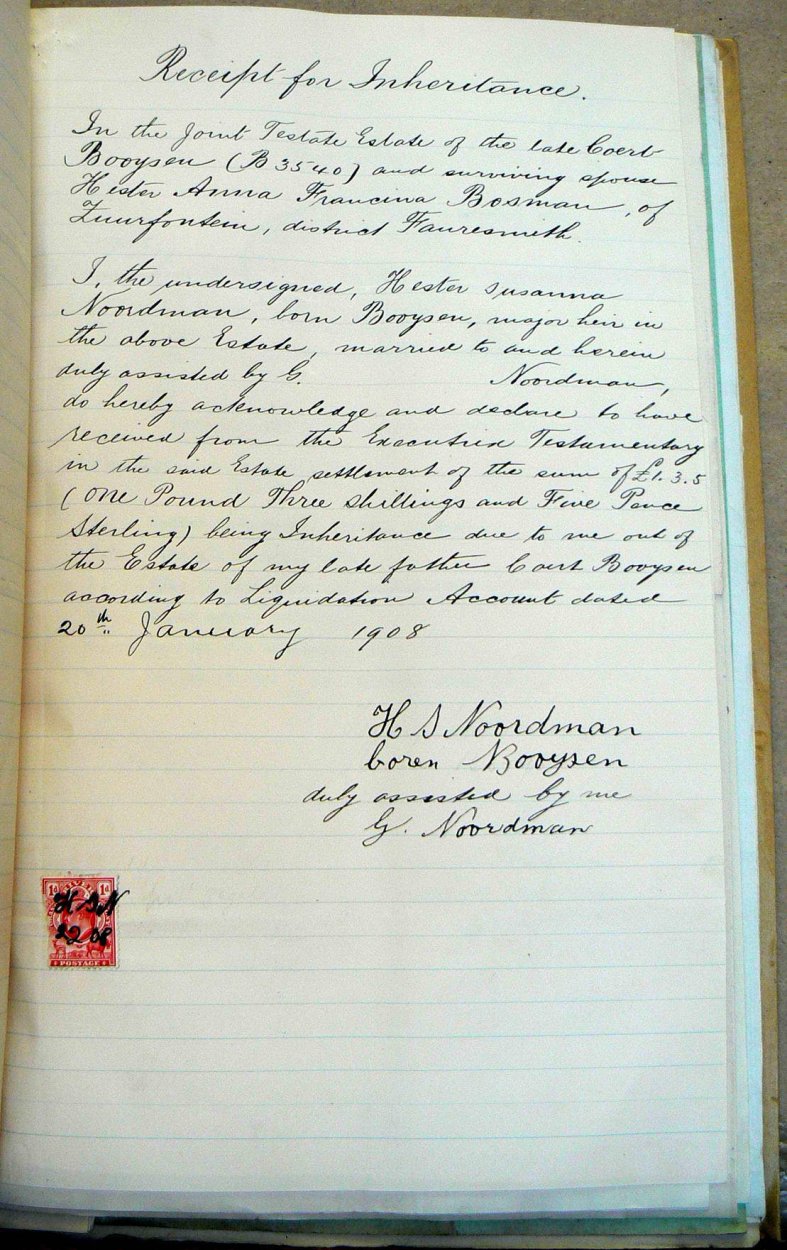 Receipt for Inheritance.
In the Joint Testate Estate of the late Coert
Booysen (B3540) and surviving spouse
Hester Anna Francina Bosman, of
Zuurfontein, district Fauresmith.
I, the undersigned, Hester Susanna
Noordman, born Booysen, major heir in
the above Estate, married to and herein
duly assisted by G. Noordman,
do hereby acknowledge and declare to have
received from the Executrix Testamentary
in the said Estate settlement of the sum of £1.3.5
(One Pound Three Shillings and Five Pence
Sterling) being Inheritance due to me out of
the Estate of my late father Coert Booysen
according to Liquidation Account dated
20th January 1908
H S Noordman
boren Booysen
duly assisted by me
G. Noordman
1d 1d
H.S.N
08
POSTAGE